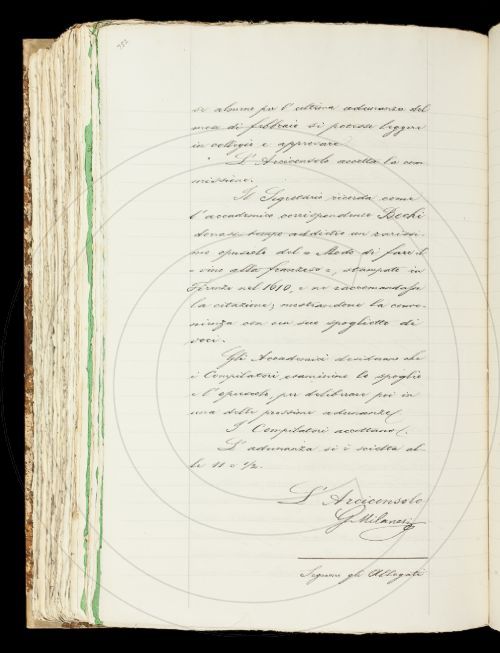 se almeno per l'ultima adunanza del
mese di febbraio si potesse leggere
in collegio e approvare.
L'Arciconsolo accetta la com
missione.
Il Segretario ricorda come
l'accademico corrispondente Bechi
donasse tempo addietro un rarissi
mo opuscolo del « Modo di fare il
« vino alla franzese », stampato in
Firenze nel 1610, e ne raccomandasse
la citazione; mostrandone la conve-
nienza con un suo spoglietto di
voci.
Gli Accademici desiderano che
i Compilatori esaminino lo spoglio
e l'opuscolo, per deliberare poi in
una delle prossime adunanze.
I Compilatori accettano.
L'adunanza si è sciolta al-
le 11 e 1/2.
L'Arciconsolo
G Milanesi
Seguono gli Allegati